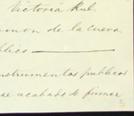 Victoria Rub.
mon de la cueva
blico
nstrumentos publicos
se acabado de firmar